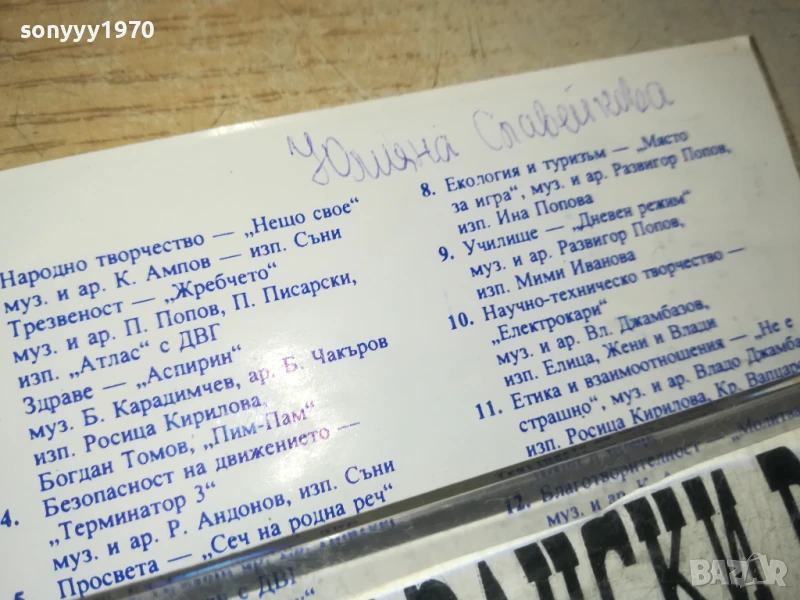 sonyyy1970
Юлияна Славейкова
Народно творчество — „Нещо свое“
муз. и ар. К. Ампов — изп. Съни
Трезвеност — „Жребчето“
муз. и ар. П. Попов, П. Писарски,
изп. „Атлас“ с ДВГ
Здраве — „Аспирин“
муз. Б. Карадимчев, ар. Б. Чакъров
изп. Росица Кирилова,
Богдан Томов, „Пим-Пам“
4. Безопасност на движението —
„Терминатор 3“
муз. и ар. Р. Андонов, изп. Съни
5. Просвета — „Сеч на родна реч“
с ДВГ
8. Екология и туризъм — „Място
за игра“, муз. и ар. Развигор Попов,
изп. Ина Попова
9. Училище — „Дневен режим“
муз. и ар. Развигор Попов,
изп. Мими Иванова
10. Научно-техническо творчество —
„Електрокари“
муз. и ар. Вл. Джамбазов,
изп. Елица, Жени и Влади
11. Етика и взаимоотношения — „Не е
страшно“, муз. и ар. Владо Джамба
изп. Росица Кирилова, Кр. Вапцаров
12. Благотворителност — „Молитва
муз. и ар. К.
Bazar.bg